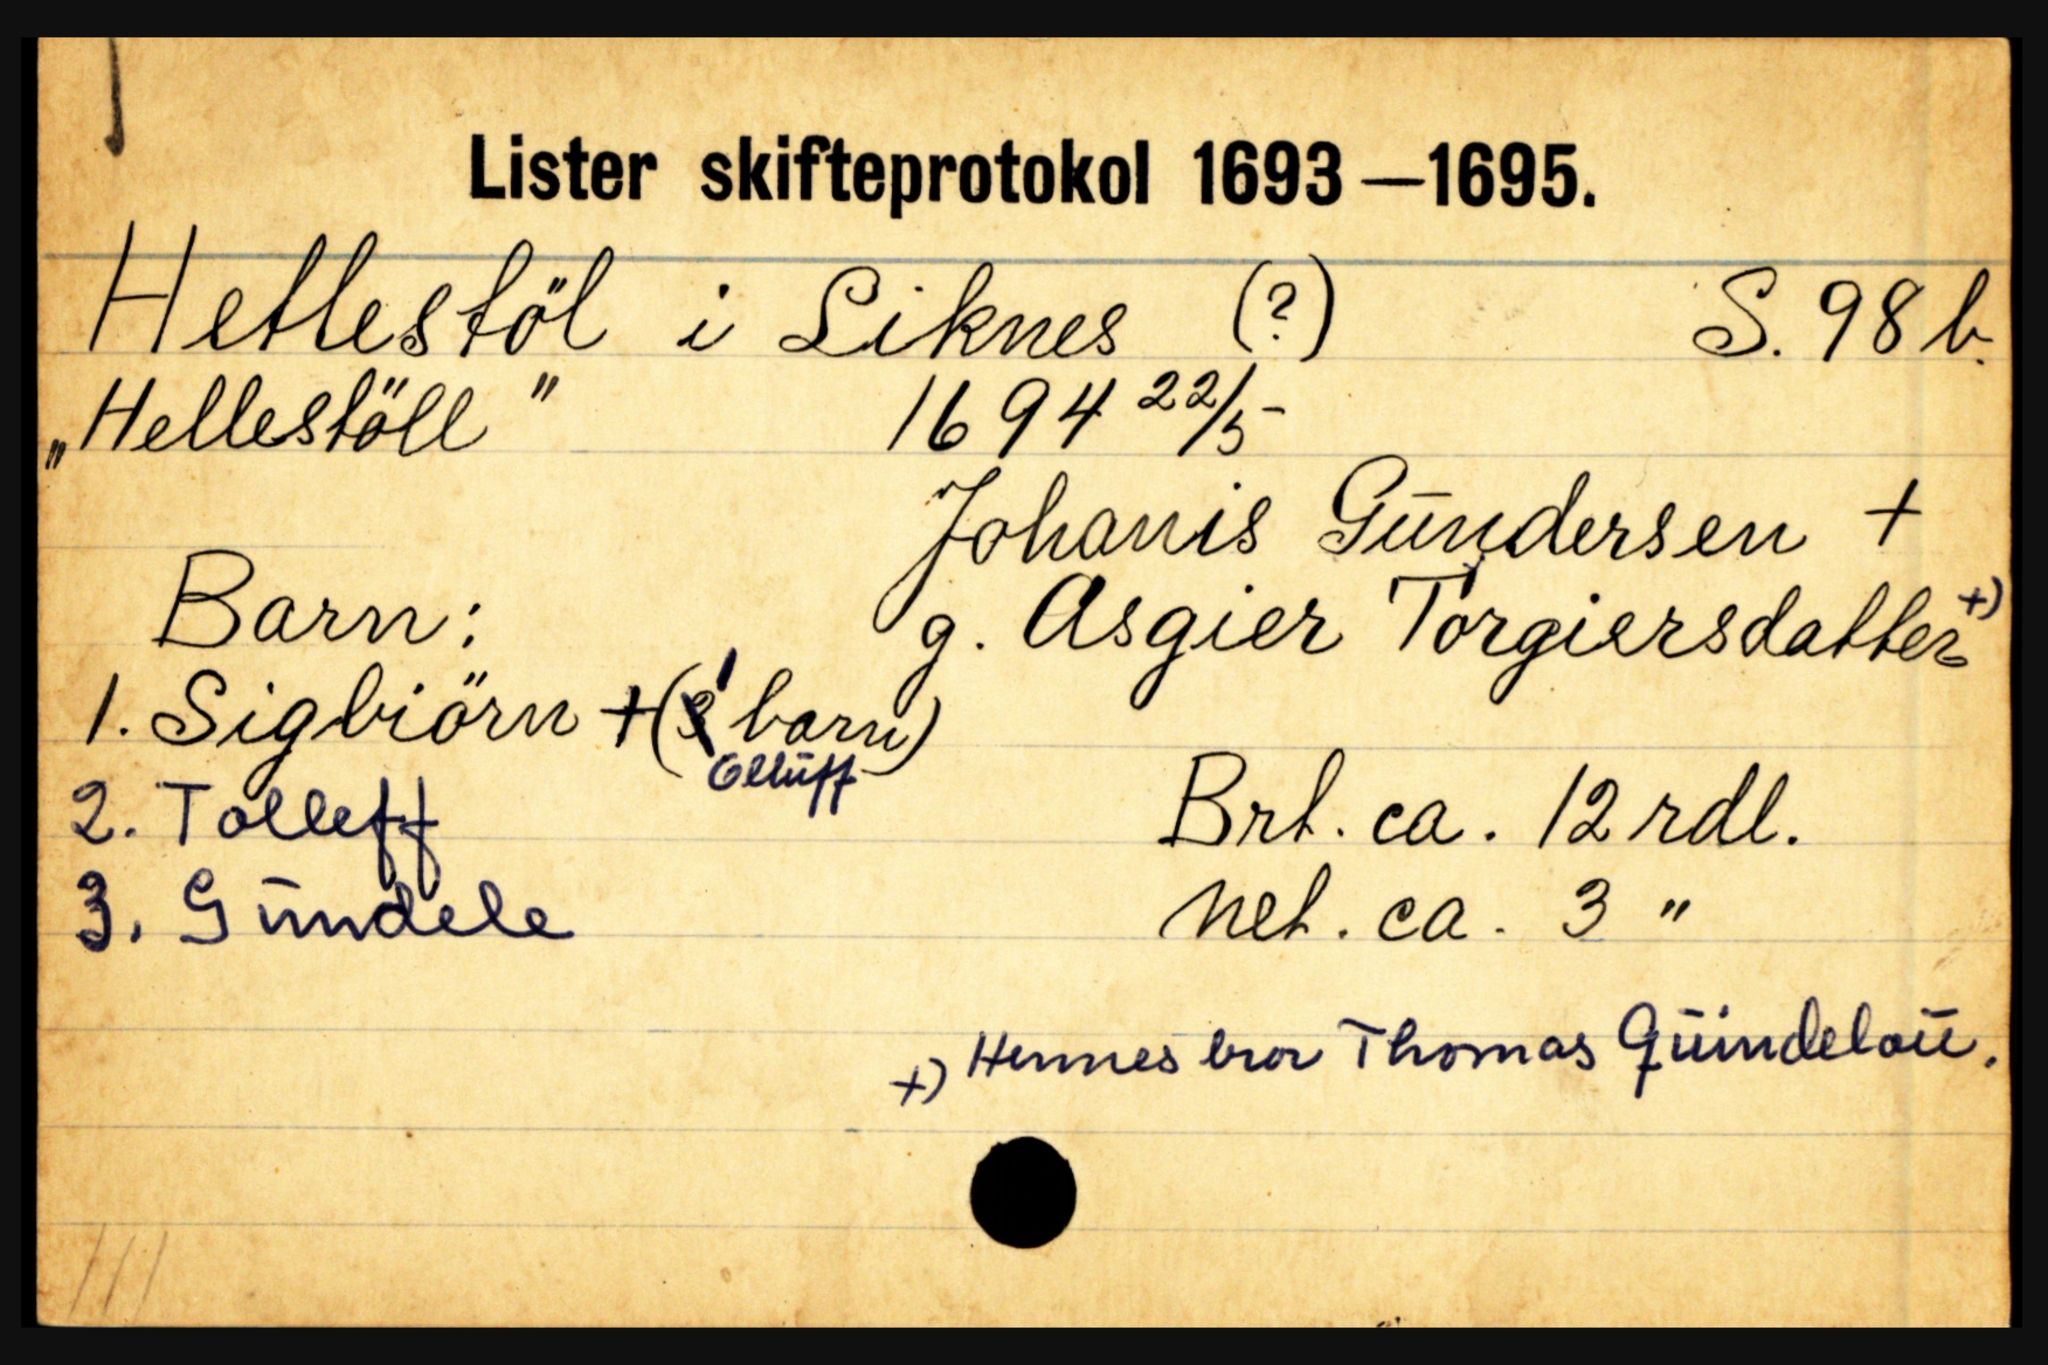 Lister skifteprotokol 1693—1695.
Hetlestöl i Liknes (?) S. 98 b.
„Hellestöll" 1694 22/5-
Johanis Gūndersen +
Barn: g. Asgier Torgiersdatter +)
1. Sigbiörn + (1 barn)
Ollūff
2. Tolleff Brt. ca. 12 rdl.
3. Gūndele Net. ca. 3 "
+) Hennes bror Thomas Qūindeloū.